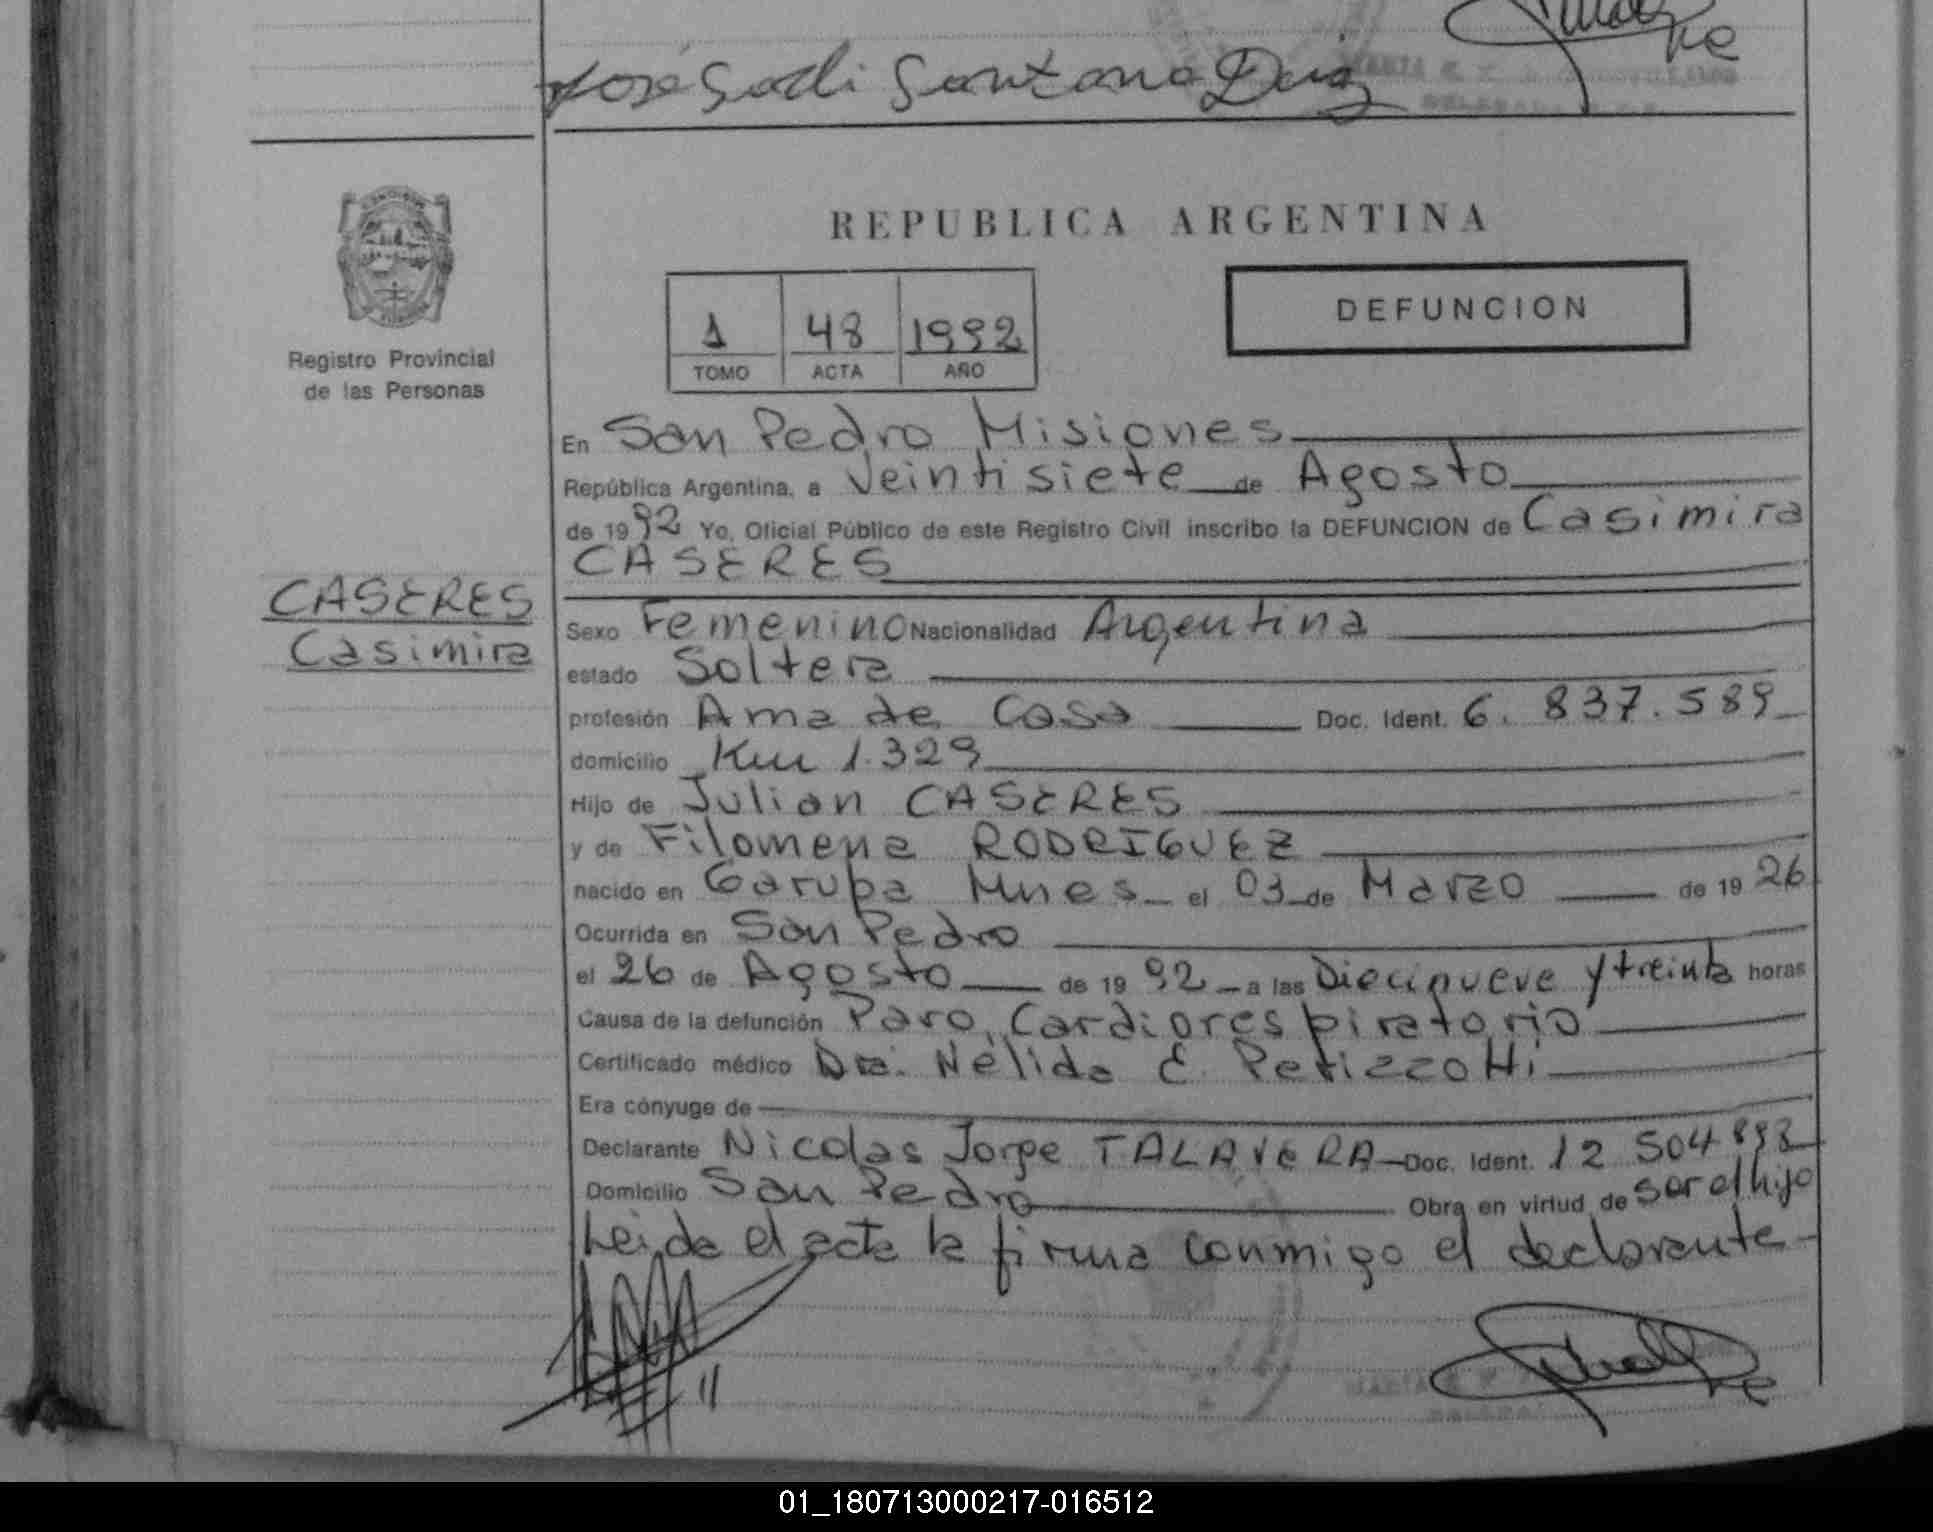 José Sadi Santana Diaz
REPUBLICA ARGENTINA
DEFUNCION
1 48 1992
TOMO ACTA AÑO
Registro Provincial
de las Personas
En San Pedro Misiones
República Argentina, a Veintisiete de Agosto
de 1992 Yo, Oficial Público de este Registro Civil inscribo la DEFUNCION de Casimira
CASERES
CASERES
Casimira
Sexo Femenino Nacionalidad Argentina
estado Soltera
profesión Ama de Casa Doc. Ident. 6.837.589
domicilio Km 1.329
Hijo de Julian CASERES
y de Filomena RODRIGUEZ
nacido en Garupa Mnes el 03 de Marzo de 1926
Ocurrida en San Pedro
el 26 de Agosto de 1992 a las Diecinueve y treinta horas
Causa de la defunción Paro Cardiorespiratorio
Certificado médico Dra. Nélida E.
Era cónyuge de
Declarante Nicolas Jorge TALAVERA Doc. Ident. 12 504 898
Domicilio San Pedro Obra en virtud de ser el hijo
Leida el acta la firma conmigo el declarante
01_180713000217-016512